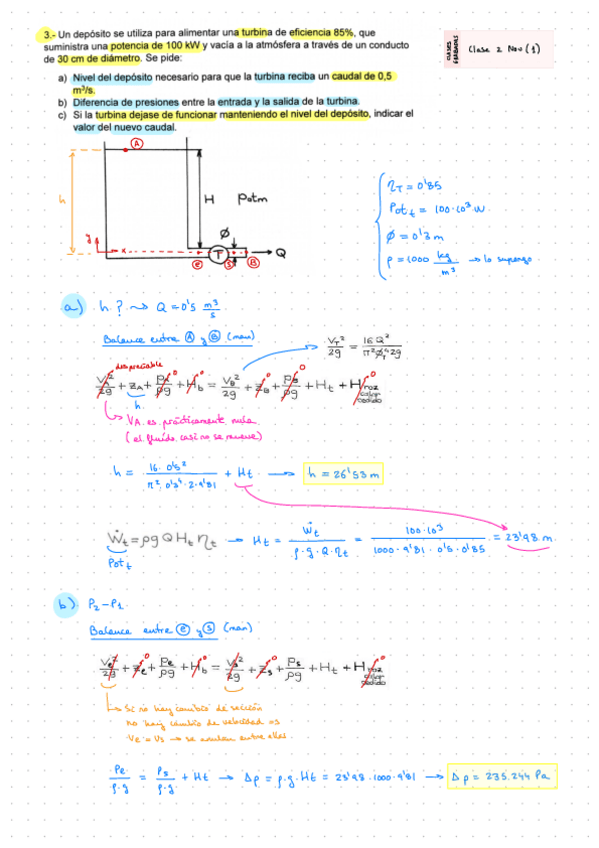 3.- Un depósito se utiliza para alimentar una turbina de eficiencia 85%, que
suministra una potencia de 100 kW y vacía a la atmósfera a través de un conducto
de 30 cm de diámetro. Se pide:
a) Nivel del depósito necesario para que la turbina reciba un caudal de 0,5
m³/s.
b) Diferencia de presiones entre la entrada y la salida de la turbina.
c) Si la turbina dejase de funcionar manteniendo el nivel del depósito, indicar el
valor del nuevo caudal.
CLASES
GRABADAS
Clase 2 Nov (1)
A
h
H
Patm
Ø
y
x
e
T
s
B
Q
ηT = 0'85
Pot t = 100·10³ W
Ø = 0'3 m
ρ = 1000 kg/m³ → lo supongo
a) h? → Q = 0'5 m³/s
Balance entre A y B (man)
VT²/2g = 16Q²/π²Ø⁴2g
despreciable
VA²/2g + zA + PA/ρg + Hb = VB²/2g + zB + PB/ρg + Ht + H roz calor cedido
h
VA es prácticamente nula
(el fluido casi no se mueve)
h = 16·0'5²/π²·0'3⁴·2·9'81 + Ht → h = 26'53 m
Ẇt = ρgQHtηt → Ht = Ẇt/ρ·g·Q·ηt = 100·10³/1000·9'81·0'5·0'85 = 23'98 m
Pot t
b) P2-P1
Balance entre e y s (man)
Ve²/2g + ze + Pe/ρg + Hb = Vs²/2g + zs + Ps/ρg + Ht + H roz calor cedido
→ Si no hay cambio de sección
no hay cambio de velocidad
Ve = Vs → se anulan entre ellas.
Pe/ρ·g = Ps/ρ·g + Ht → Δp = ρ·g·Ht = 23'98·1000·9'81 → Δp = 235.244 Pa